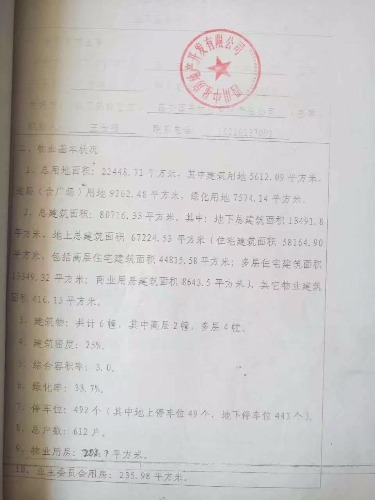 房地产开发有限公司
联系电话
二、物业基本状况
1、总用地面积：22448.71平方米，其中建筑用地5612.09平方米，
道路（含广场）用地9262.48平方米，绿化用地7574.14平方米。
2、总建筑面积：80716.33平方米，其中：地下总建筑面积13491.8
平方米，地上总建筑面积 67224.53平方米（住宅建筑面积 58164.90
平方米，包括高层住宅建筑面积 44815.58平方米；多层住宅建筑面积
13349.32平方米；商业用房建筑面积8643.5平方米），其它物业建筑
面积416.13平方米。
3、建筑物：共计6幢，其中高层2幢，多层4幢。
4、建筑密度：25%。
5、综合容积率：3.0。
6、绿化率：33.7%。
7、停车位：492个（其中地上停车位49个，地下停车位443个）。
8、总户数：612户。
9、物业用房：平方米。
10、业主委员会用房：235.98平方米。